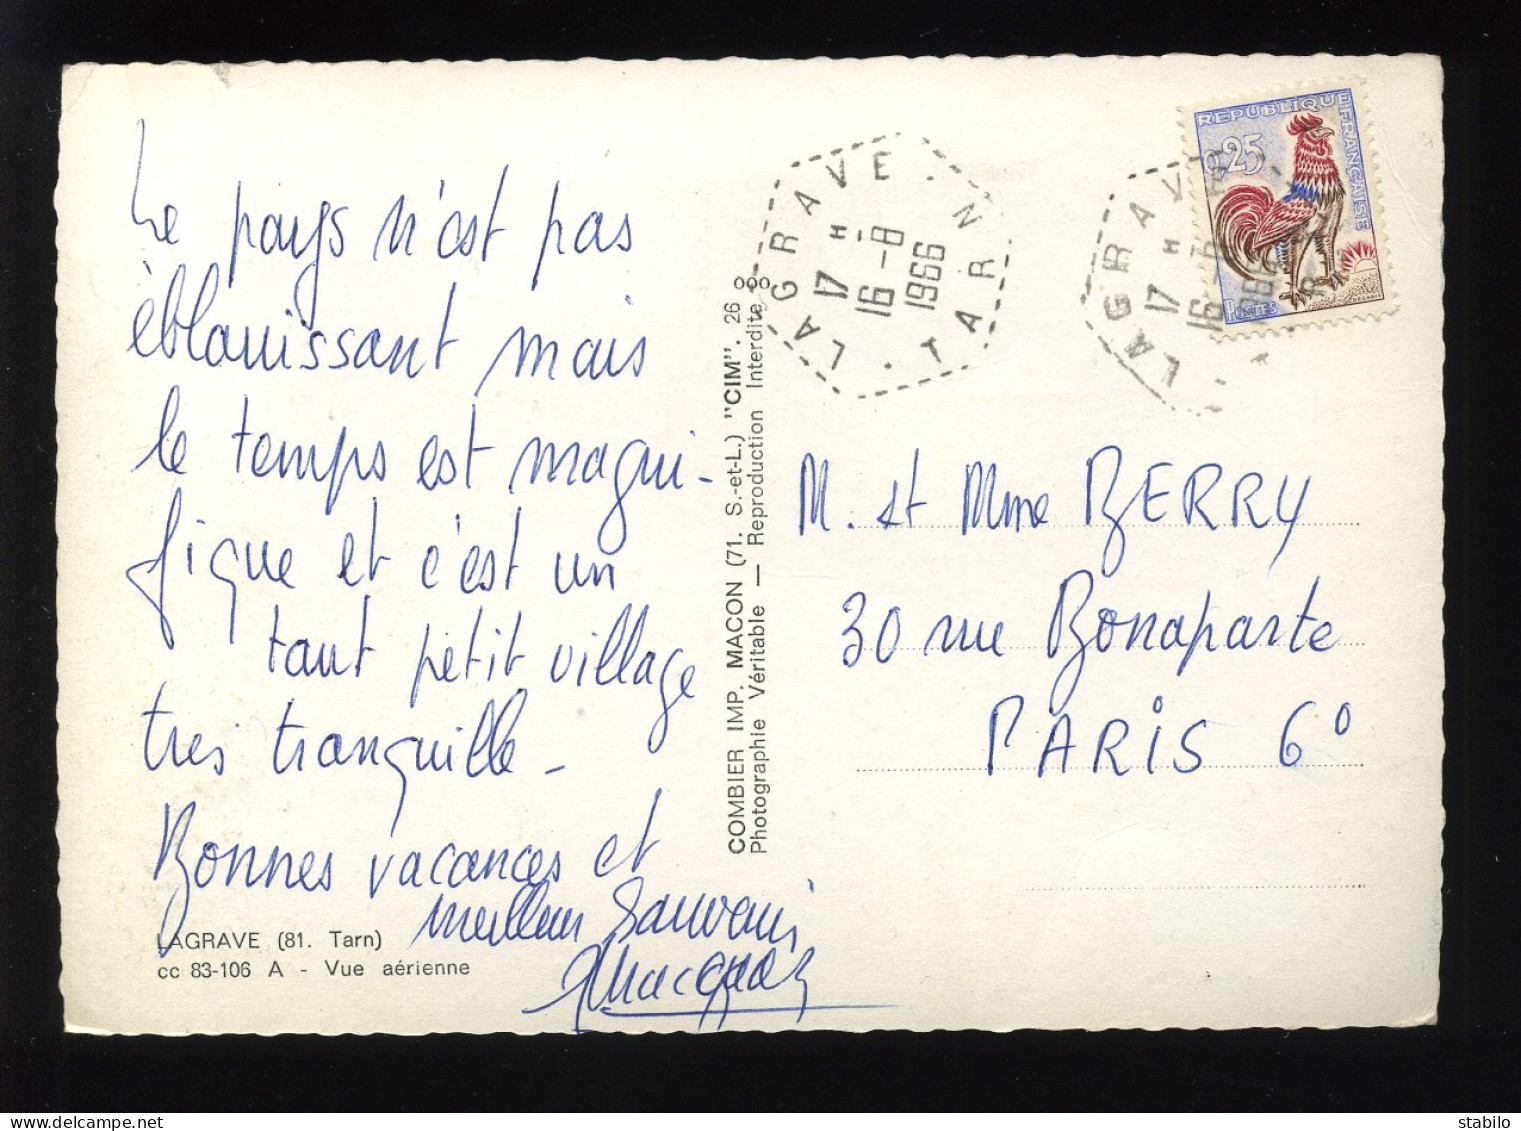 Le pays n'est pas
éblouissant mais
le temps est magni-
fique et c'est un
tout petit village
très tranquille -
Bonnes vacances et
meilleur souvenir
LAGRAVE (81. Tarn)
cc 83-106 A - Vue aérienne
COMBIER IMP. MACON (71. S.-et-L.) "CIM". 26
Photographie Véritable — Reproduction Interdite
LAGRAVE . N
TARN
17 H
16 -8
1966
LAGRAVE
17 H
16 -8
REPUBLIQUE FRANÇAISE
0,25
POSTES
M. et Mme BERRY
30 rue Bonaparte
PARIS 6°
stabilo
www.delcampe.net